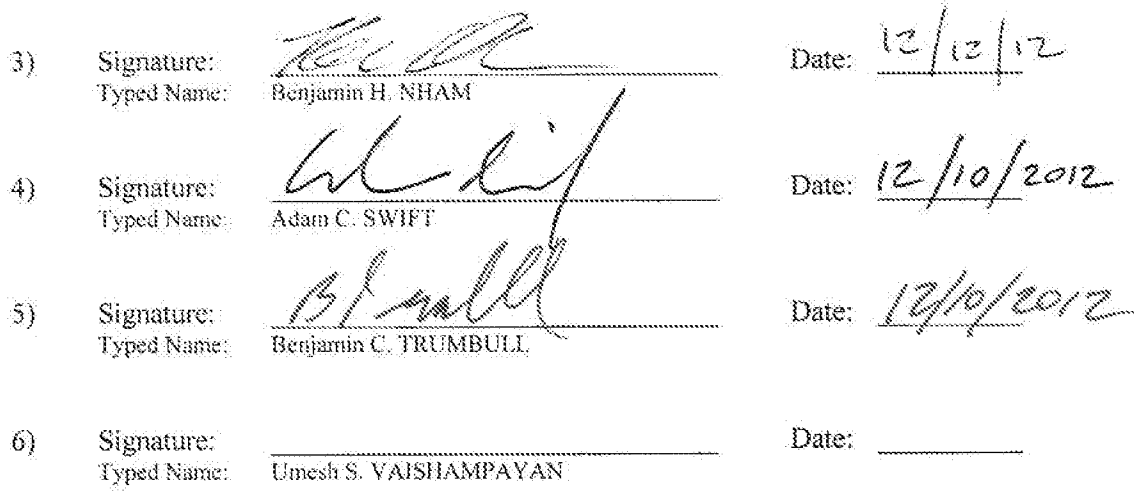 3) Signature: Date: 12/12/12
Typed Name: Benjamin H. NHAM
4) Signature: Date: 12/10/2012
Typed Name: Adam C. SWIFT
5) Signature: Date: 12/10/2012
Typed Name: Benjamin C. TRUMBULL
6) Signature: Date:
Typed Name: Umesh S. VAISHAMPAYAN